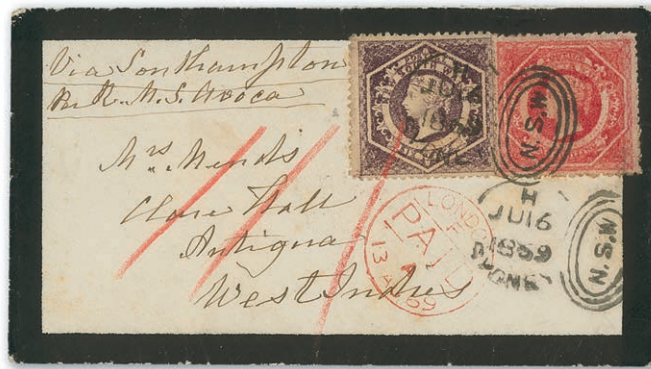 Via Southampton
Per R.M.S. Avoca
Mrs. Mends
Clare Hall
Antigua
West Indies
JU 16
1869
LONDON
PAID
13 69
H
JU 16
1869
SYDNEY
N.S.W
N.S.W